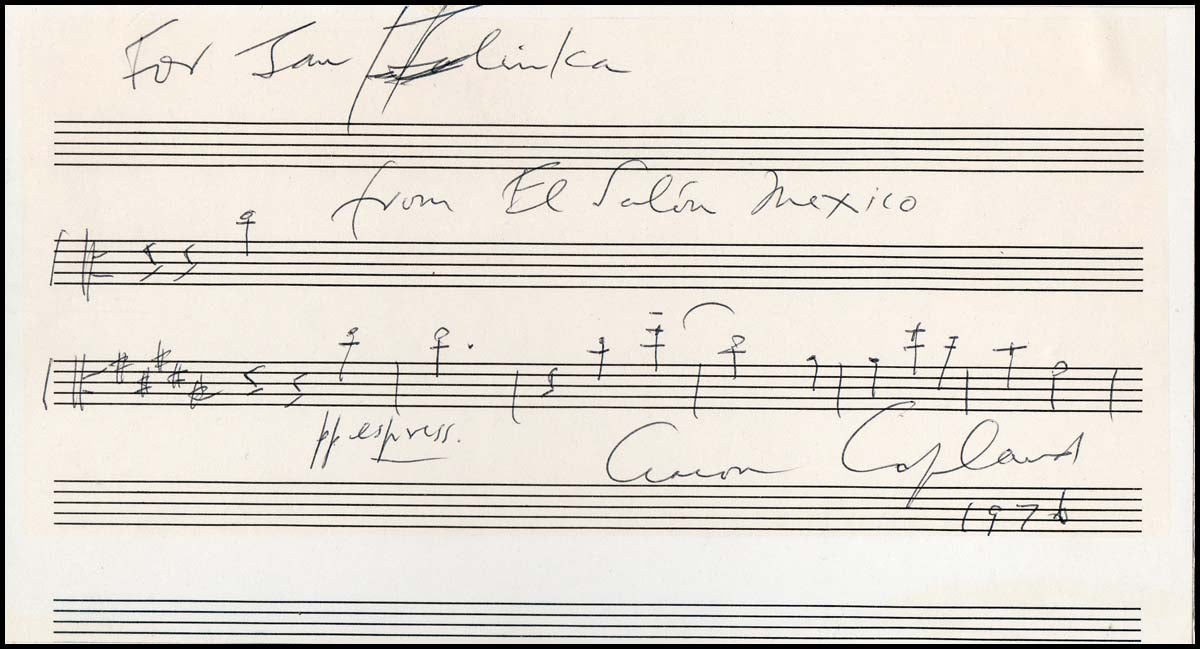 For Jan Holinka
from El Salón Mexico
pp espress.
Aaron Copland
1976